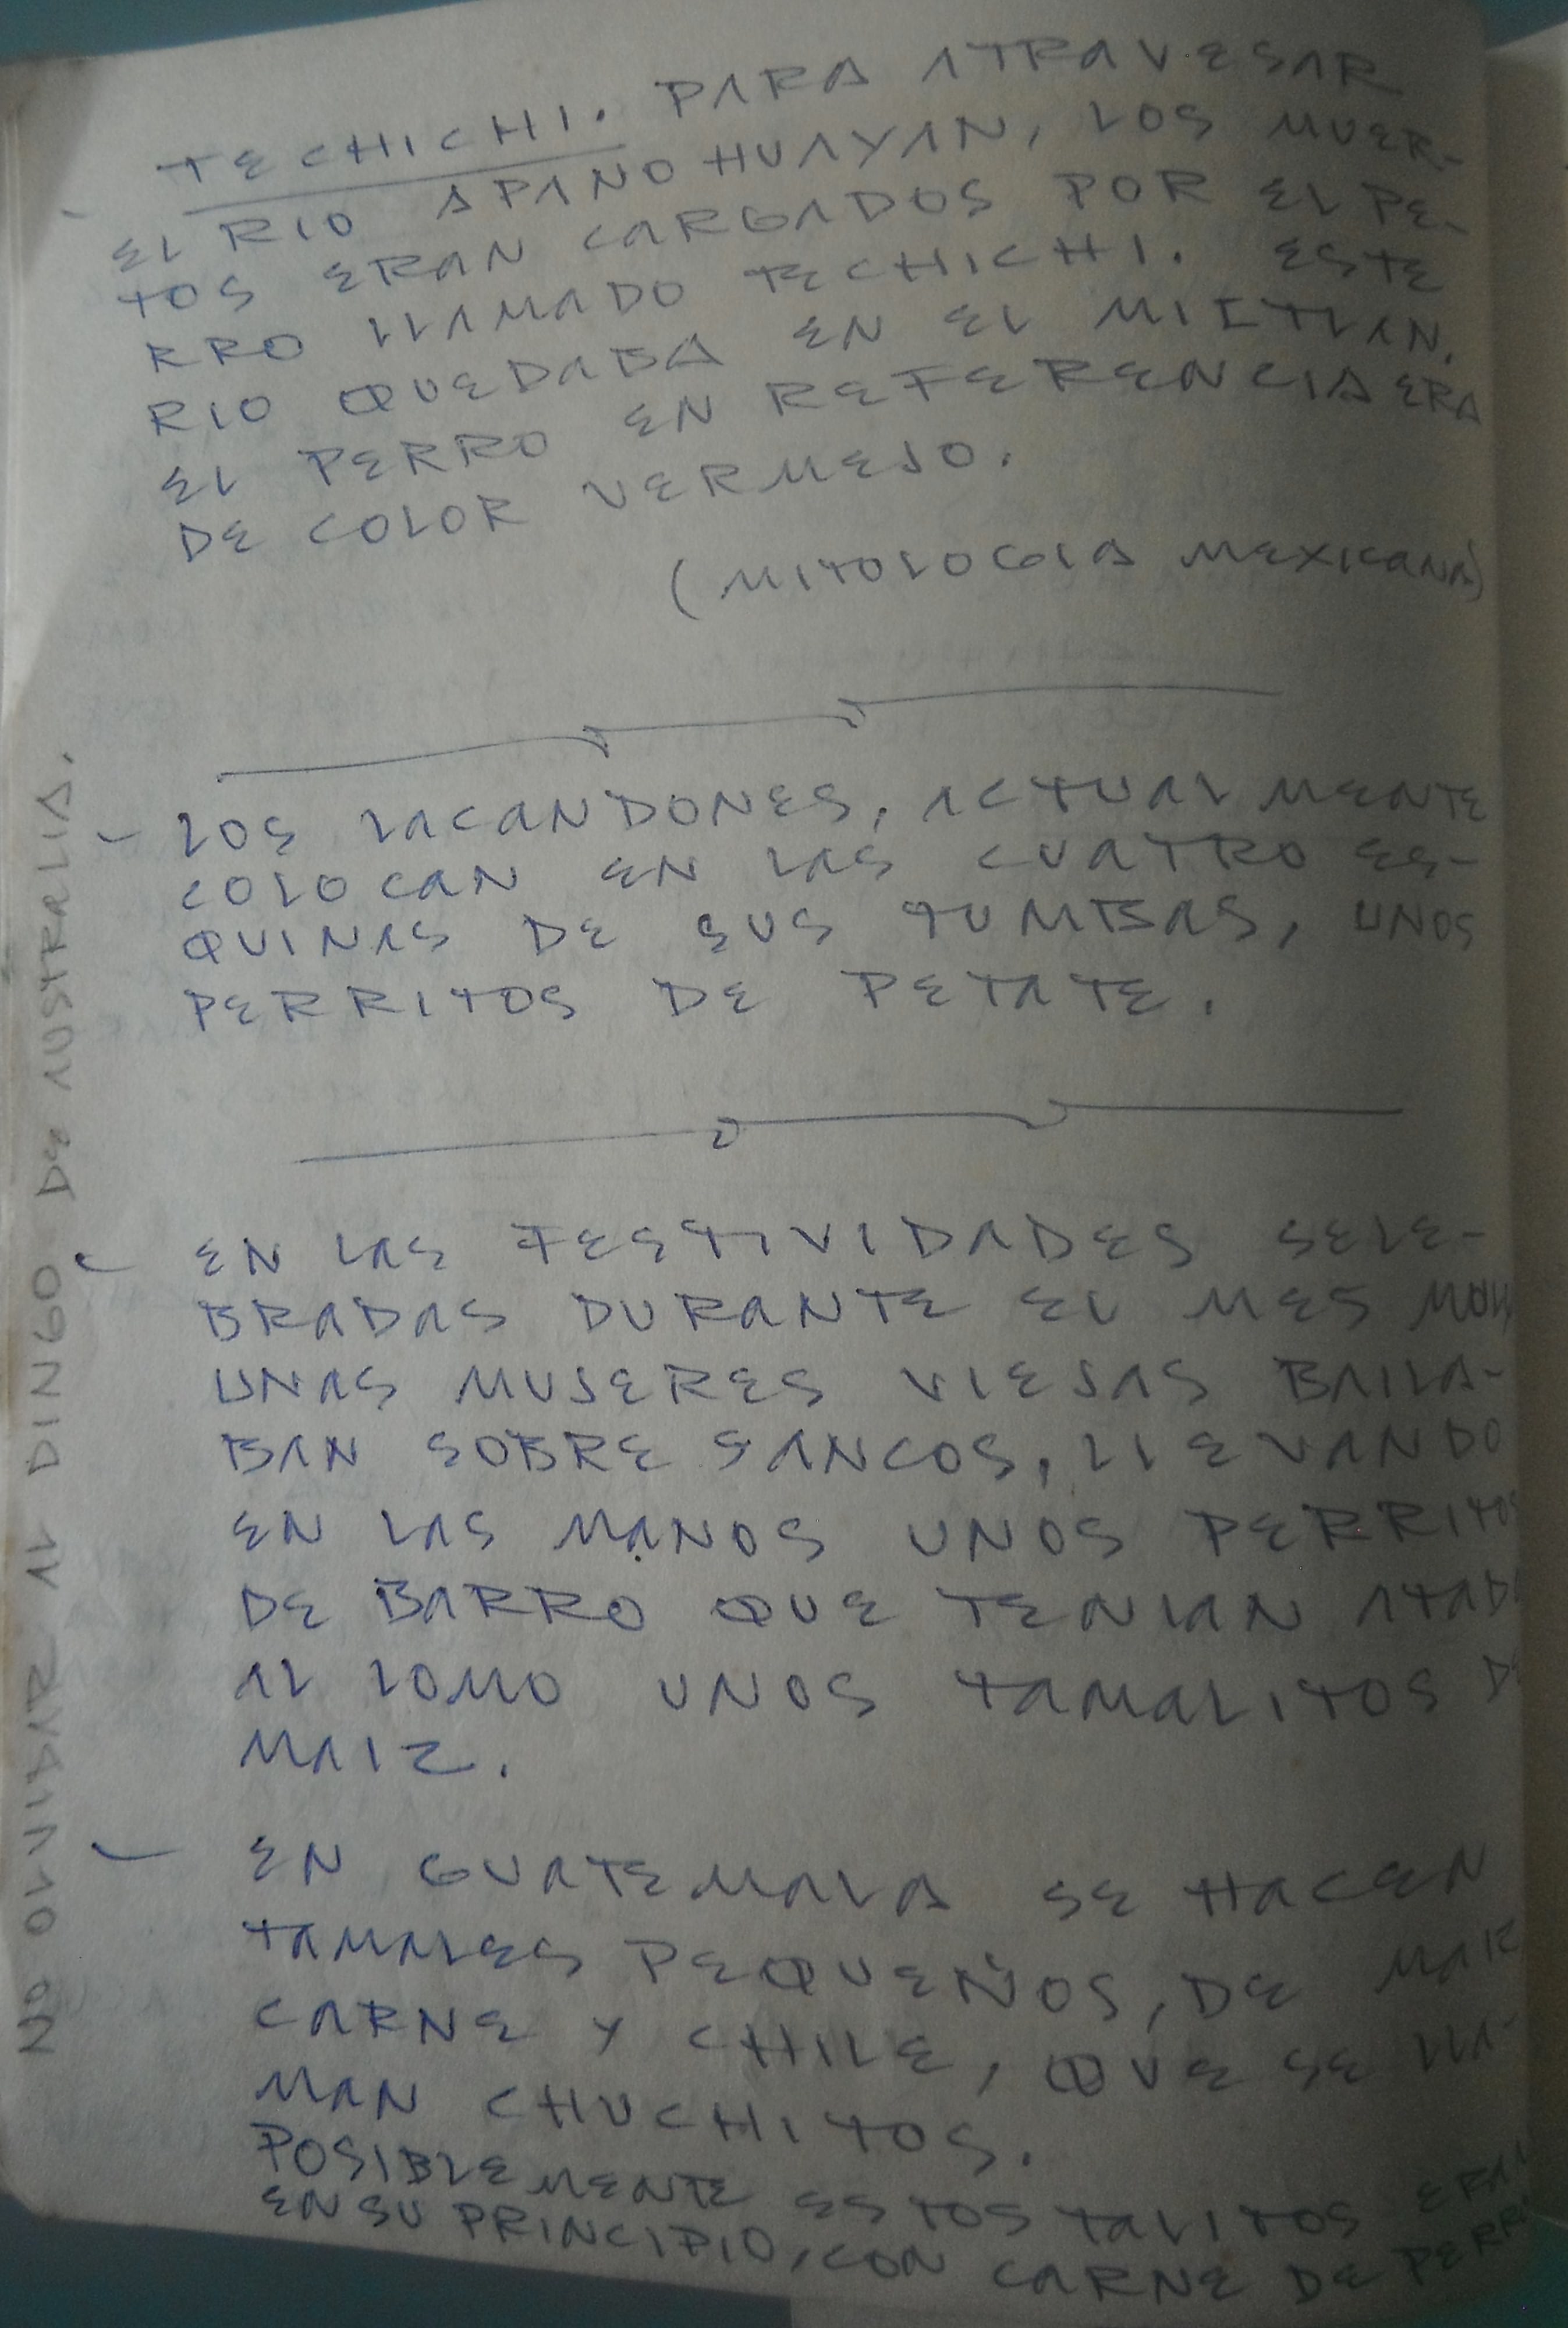 TECHICHI. PARA ATRAVESAR
EL RIO APANOHUAYAN, LOS MUER-
TOS ERAN CARGADOS POR EL PE-
RRO LLAMADO TECHICHI. ESTE
RIO QUEDABA EN EL MICTLAN.
EL PERRO EN REFERENCIA ERA
DE COLOR VERMEJO.
(MITOLOGIA MEXICANA)
- LOS LACANDONES, ACTUALMENTE
COLOCAN EN LAS CUATRO ES-
QUINAS DE SUS TUMBAS, UNOS
PERRITOS DE PETATE.
- EN LAS FESTIVIDADES SELE-
BRADAS DURANTE EL MES
UNAS MUJERES VIEJAS BAILA-
BAN SOBRE SANCOS, LLEVANDO
EN LAS MANOS UNOS PERRITOS
DE BARRO QUE TENIAN
AL LOMO UNOS TAMALITOS DE
MAIZ.
- EN GUATEMALA SE HACEN
TAMALES PEQUEÑOS, DE
CARNE Y CHILE, QUE SE LLA-
MAN CHUCHITOS.
POSIBLEMENTE ESTOS TALITOS ERAN
EN SU PRINCIPIO, CON CARNE DE
NO OLVIDAR AL DINGO DE AUSTRALIA.